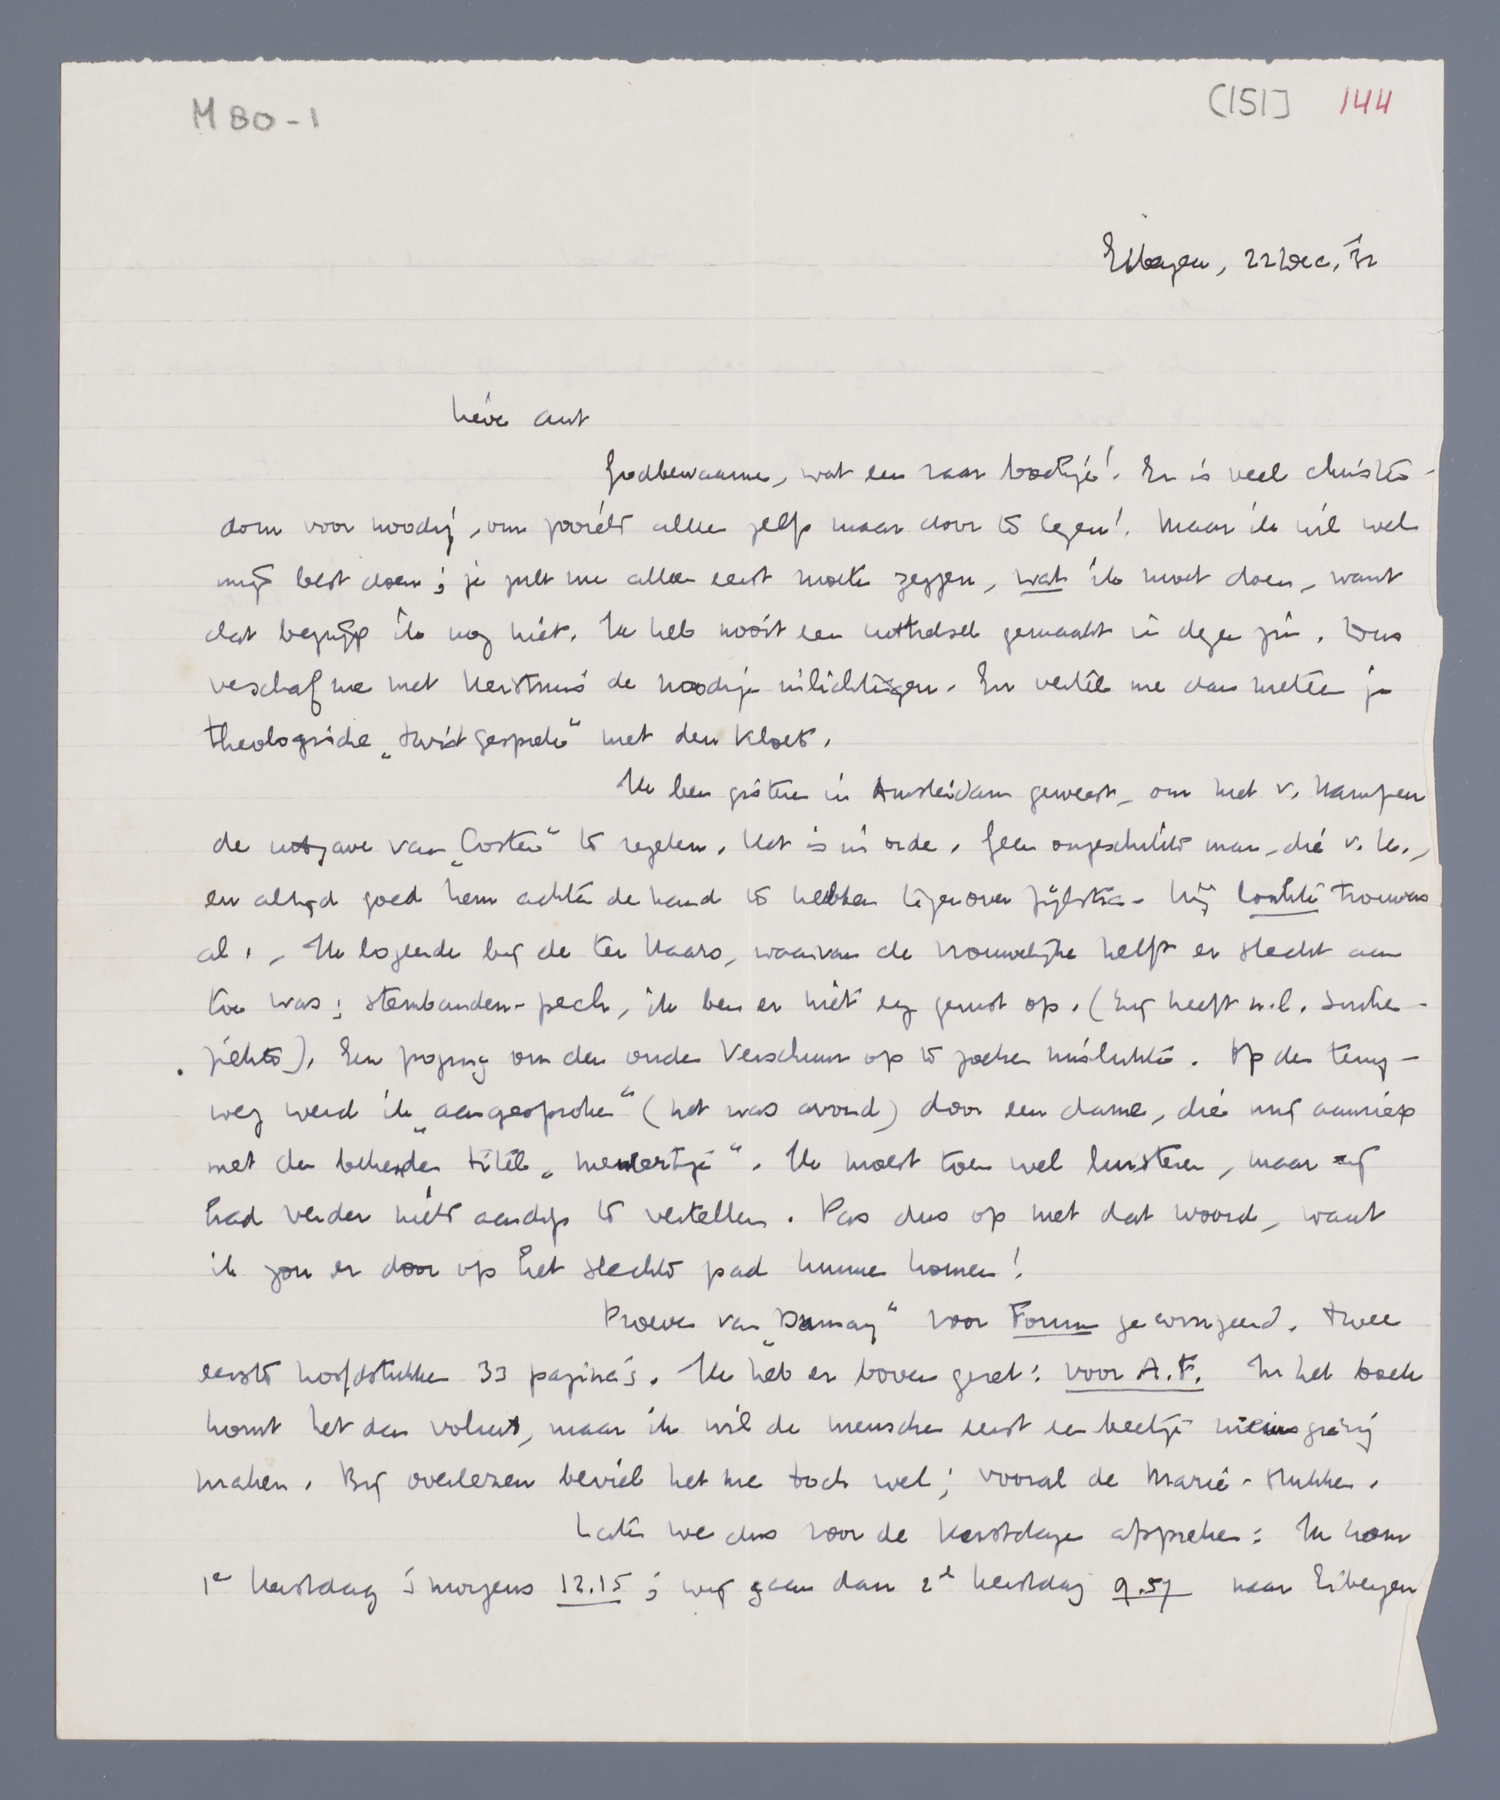 M 80-1
[151] 144
Eibergen, 22 Dec. '32
Lieve Ant
Godbewaarme, wat een raar boekje! Er is veel christen-
dom voor noodig, om zooiets alleen zelfs maar door te lezen! Maar ik wil wel
mijn best doen; je zult me alleen eerst moeten zeggen, wat ik moet doen, want
dat begrijp ik nog niet. Ik heb nooit een uittreksel gemaakt in dezen zin. Dus
verschaf me met Kerstmis de noodige inlichtingen. En vertel me dan meteen je
theologische „twistgesprek" met den Kloet.
Ik ben gisteren in Amsterdam geweest, om met v. Kampen
de uitgave van „Coster" te regelen. Het is in orde. Geen ongeschikte man, die v. K.,
en altijd goed hem achter de hand te hebben tegenover Zijlstra. Hij lachte trouwens
al. - Ik logeerde bij de ter Haars, waarvan de vrouwelijke helft er slecht aan
toe was; stembanden-pech, ik ben er niet erg gerust op. (Zij heeft n.l. suiker-
ziekte). Een poging om den ouden Verschuur op te zoeken mislukte. Op den terug-
weg werd ik „aangesproken" (het was avond) door een dame, die mij aanriep
met den bekenden titel „meneertje". Ik moest toen wel luisteren, maar zij
had verder niets aardigs te vertellen. Pas dus op met dat woord, want
ik zou er door op het slechte pad kunnen komen!
Proeven van „Dumay" voor Forum gecorrigeerd. Twee
eerste hoofdstukken 33 pagina's. Ik heb er boven gezet: voor A.F. In het boek
komt het dan voluit, maar ik wil de menschen eerst een beetje nieuwsgierig
maken. Bij overlezen beviel het me toch wel; vooral de Marie-stukken.
Laten we dus voor de Kerstdagen afspreken: Ik kom
1e Kerstdag 's morgens 12.15; wij gaan dan 2e Kerstdag 9.57 naar Eibergen